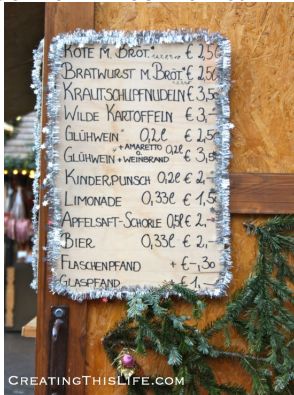 ROTE M. BRÖT. € 2,50
BRATWURST M. BRÖT. € 2,50
KRAUTSCHUPFNUDELN € 3,5
WILDE KARTOFFELN € 3,-
GLÜHWEIN 0,2l € 2,5
GLÜHWEIN + AMARETTO O. + WEINBRAND 0,2l € 3,5
KINDERPUNSCH 0,2l € 2,-
LIMONADE 0,33l € 1,5
APFELSAFT-SCHORLE 0,5l € 2,-
BIER 0,33l € 2,-
FLASCHENPFAND + €-,30
GLASPFAND € 1,-
CREATINGTHISLIFE.COM